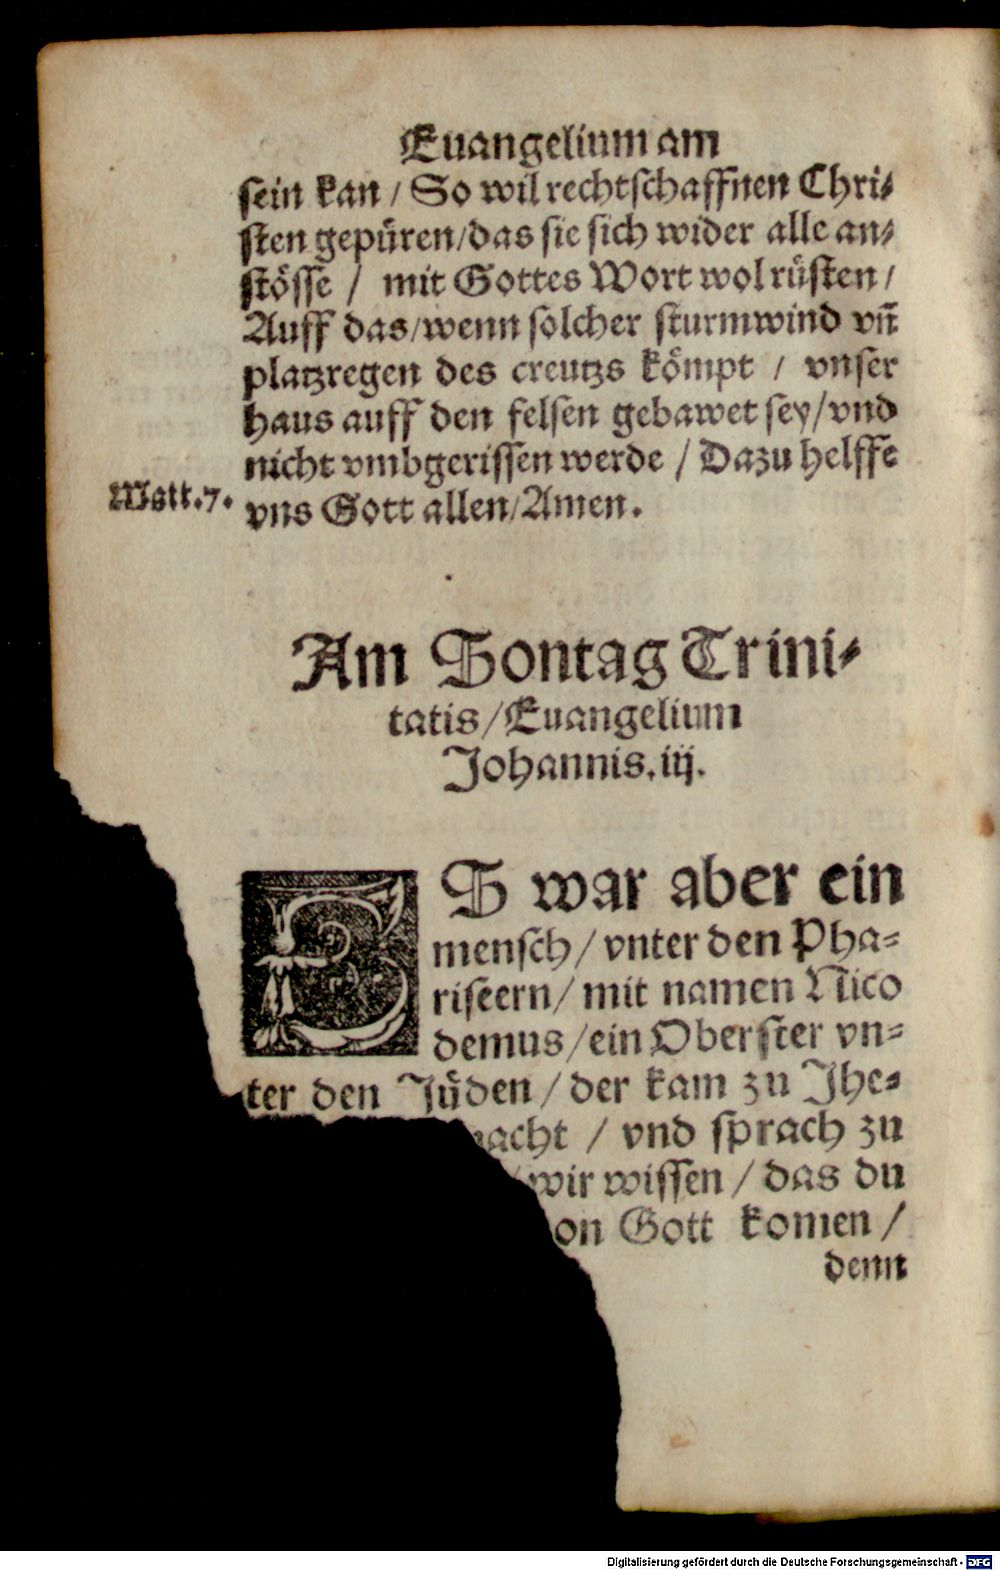 Euangelium am
sein kan / So wil rechtschaffnen Chri-
sten gepüren/das sie sich wider alle an-
stösse / mit Gottes Wort wol rüsten /
Auff das/wenn solcher sturmwind vñ
platzregen des creutzs kömpt / vnser
haus auff den felsen gebawet sey/vnd
nicht vmbgerissen werde / Dazu helffe
Matt.7. vns Gott allen/Amen.
Am Sontag Trini-
tatis/Euangelium
Johannis.iij.
ES war aber ein
mensch/vnter den Pha=
riseern/ mit namen Nico
demus/ein Oberster vn=
ter den Jüden/der kam zu Jhe=
nacht / vnd sprach zu
/wir wissen/das du
on Gott komen/
denn
Digitalisierung gefördert durch die Deutsche Forschungsgemeinschaft - DFG